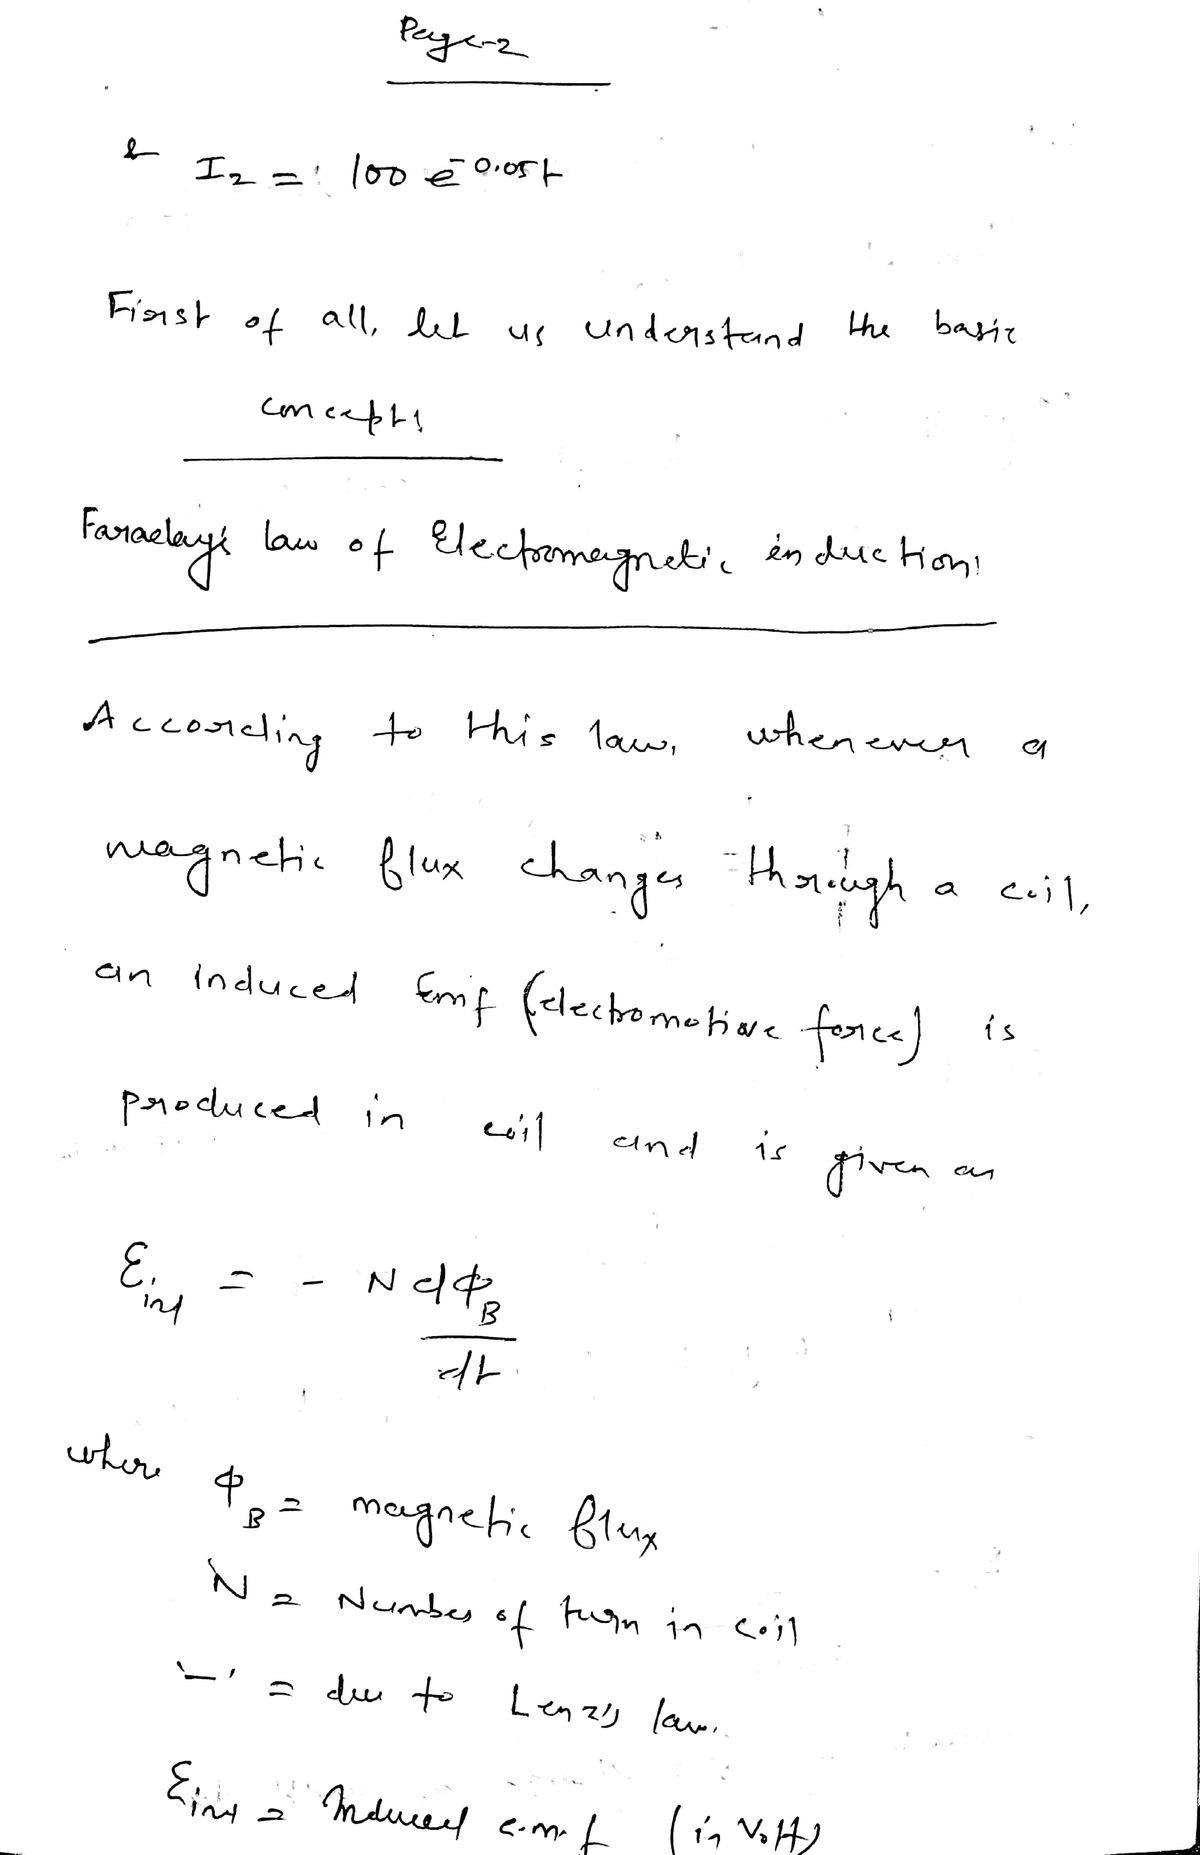 Page-2
& I₂ = 100 e⁻⁰·⁰⁵ᵗ
First of all, let us understand the basic
concept!
Faraday's law of Electromagnetic induction:
According to this law, whenever a
magnetic flux changes through a coil,
an induced Emf (electromotive force) is
produced in coil and is given as
Ɛind = - N dϕB
dt
where ϕB = magnetic flux
N = Number of turn in coil
'-' = due to Lenz's law.
Ɛind = Induced e.m.f (in Volt)